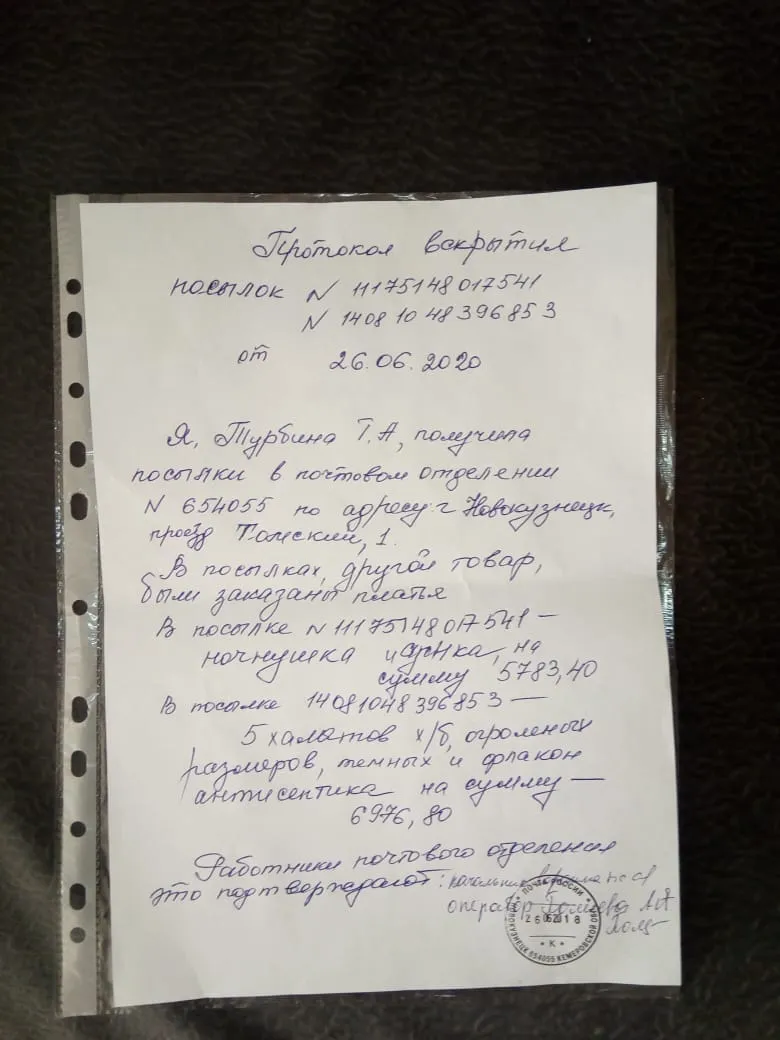 Протокол вскрытия
посылок N 11175148017541
N 14081048396853
от 26.06.2020
Я, Турбина Т.А, получила
посылки в почтовом отделении
N 654055 по адресу: г Новокузнецк,
проезд Томский, 1.
В посылках, другой товар,
были заказаны платья
В посылке N 11175148017541 —
ночнушка и сумка, на
сумму 5783,40
В посылке 14081048396853 —
5 халатов х/б, огромных
размеров, темных и флакон
антисептика на сумму —
6976,80
Работники почтового отделения
это подтверждают: начальник
оператор
ПОЧТА РОССИИ
26062018
К
НОВОКУЗНЕЦК 654055 КЕМЕРОВСКОЙ ОБЛ